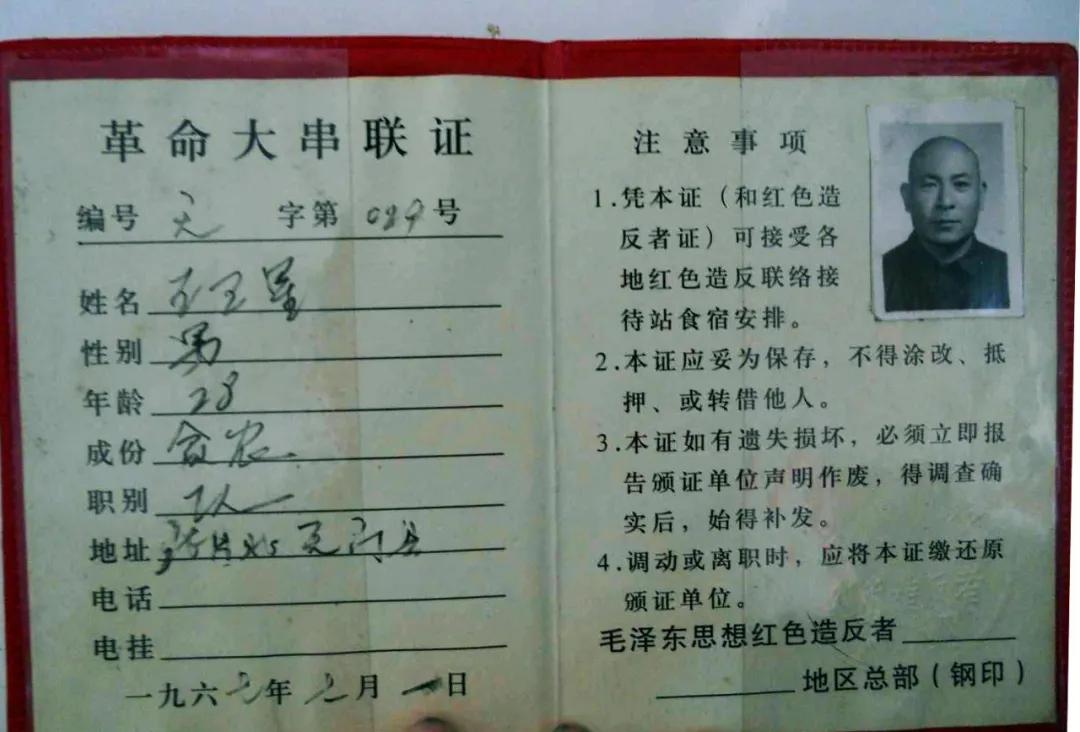 革命大串联证
编号 天 字第 029 号
姓名
性别 男
年龄 28
成份 贫农
职别 工人
地址 天门县
电话
电挂
一九六七年 月 一日
注意事项
1.凭本证（和红色造
反者证）可接受各
地红色造反联络接
待站食宿安排。
2.本证应妥为保存，不得涂改、抵
押、或转借他人。
3.本证如有遗失损坏，必须立即报
告颁证单位声明作废，得调查确
实后，始得补发。
4.调动或离职时，应将本证缴还原
颁证单位。
毛泽东思想红色造反者
地区总部（钢印）